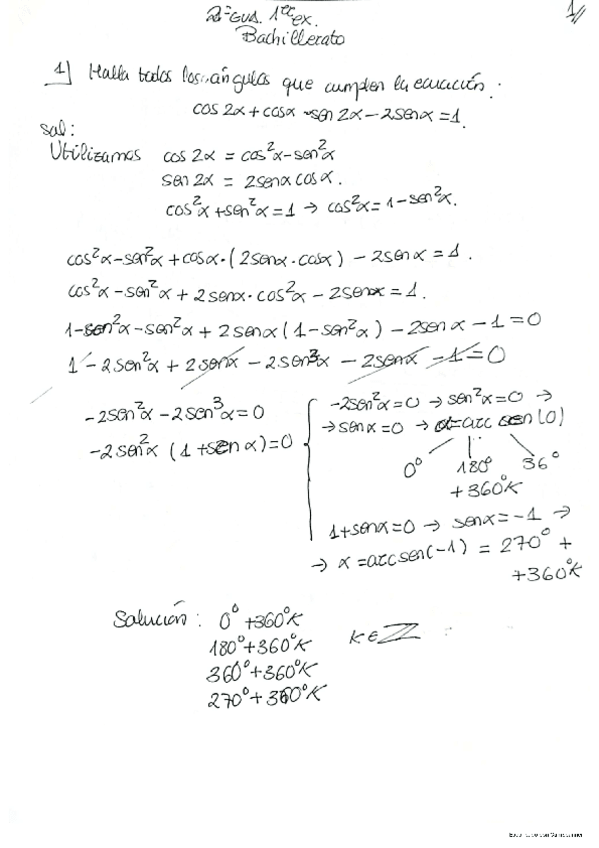 2ª Eva. 1er ex.
Bachillerato
1//
1] Halla todos los ángulos que cumplen la ecuación:
cos 2α + cosα · sen 2α - 2senα = 1.
Sol:
Utilizamos cos 2α = cos²α - sen²α
sen 2α = 2senα cosα.
cos²α + sen²α = 1 → cos²α = 1 - sen²α.
cos²α - sen²α + cosα · (2senα · cosα) - 2senα = 1.
cos²α - sen²α + 2senα · cos²α - 2senα = 1.
1 - sen²α - sen²α + 2senα (1 - sen²α) - 2senα - 1 = 0
1 - 2sen²α + 2senα - 2sen³α - 2senα - 1 = 0
-2sen²α - 2sen³α = 0
-2sen²α (1 + senα) = 0
-2sen²α = 0 → sen²α = 0 →
→ senα = 0 → α = arc sen (0)
0° 180° 36°
+ 360°K
1 + senα = 0 → senα = -1 →
→ α = arcsen(-1) = 270° +
+ 360°K
Solución: 0° + 360°K
180° + 360°K
360° + 360°K
270° + 360°K
K ∈ Z